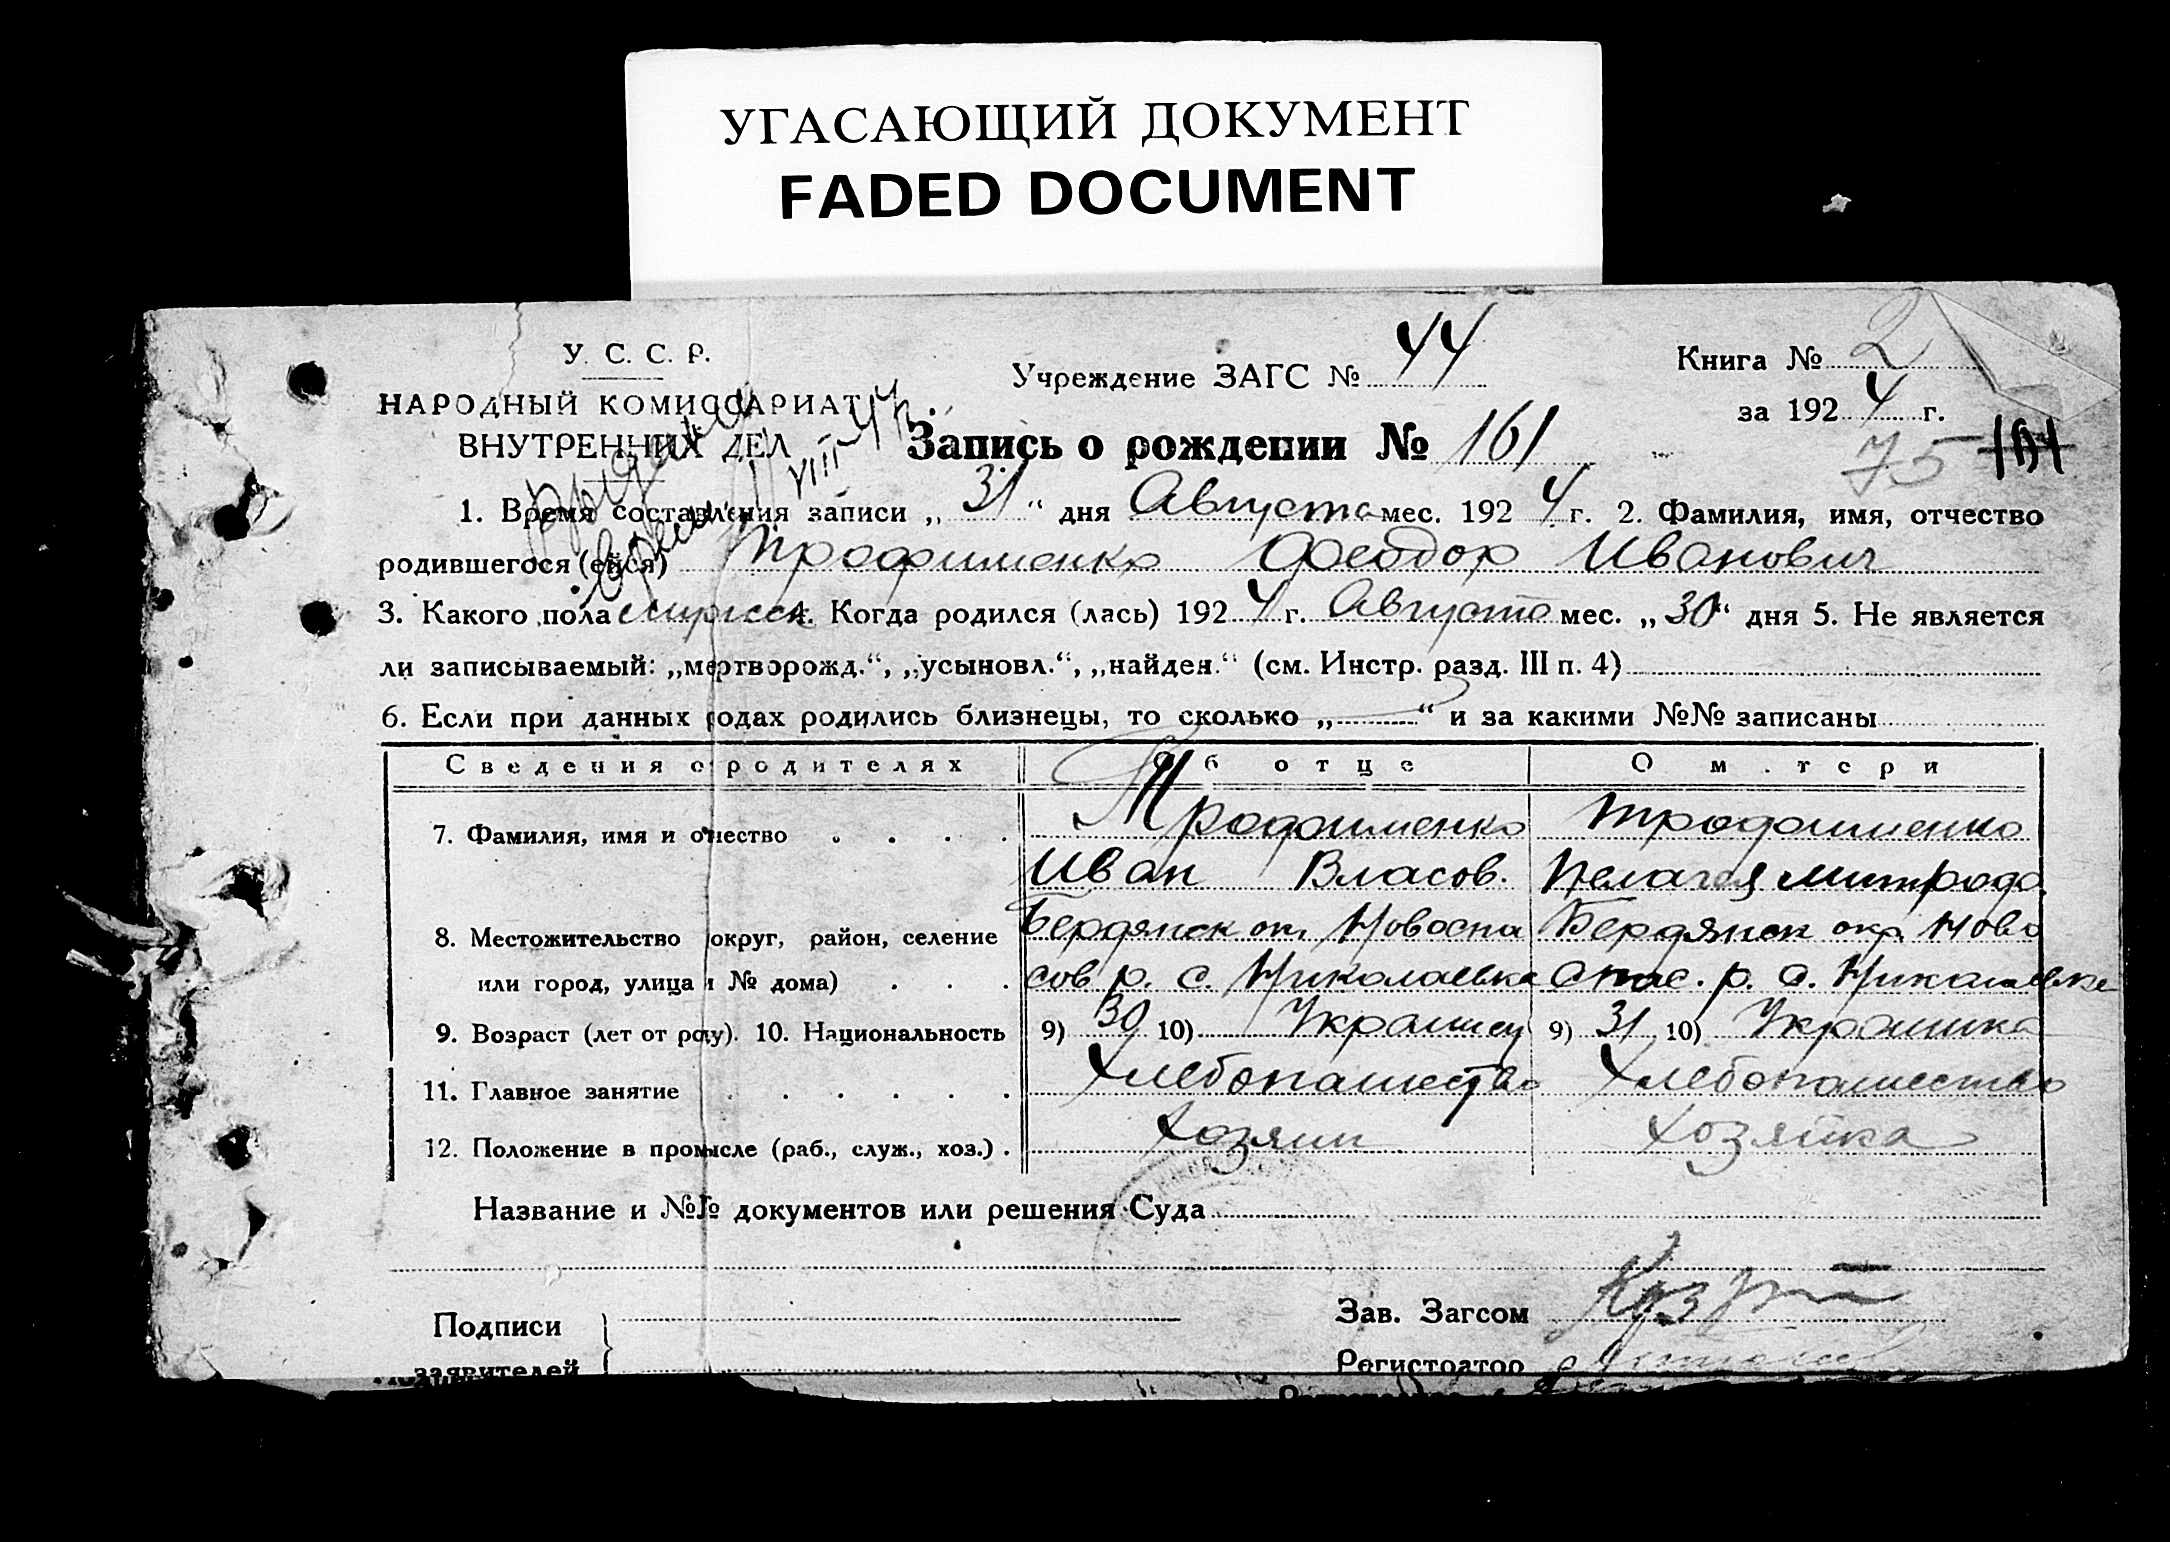 УГАСАЮЩИЙ ДОКУМЕНТ
FADED DOCUMENT
У. С. С. Р.
НАРОДНЫЙ КОМИССАРИАТ
ВНУТРЕННИХ ДЕЛ
Учреждение ЗАГС № 44
Книга № 2
за 1924 г.
Запись о рождении № 161
75
1. Время составления записи „31“ дня Августа мес. 1924 г. 2. Фамилия, имя, отчество
родившегося (ейся) Трофименко Феодор Иванович
3. Какого пола мужск 4. Когда родился (лась) 1924 г. Августа мес. „30“ дня 5. Не является
ли записываемый: „мертворожд.“, „усыновл.“, „найден.“ (см. Инстр. разд. III п. 4)
6. Если при данных родах родились близнецы, то сколько „ “ и за какими №№ записаны
Сведения о родителях Об отце О м.тери
7. Фамилия, имя и отчество Трофименко Трофименко
Иван Власов. Пелагея Митрофа
8. Местожительство округ, район, селение Бердянск ок. Новоспа Бердянск окр. Ново
или город, улица и № дома) сов р. с. Николаевка Спас. р. с. Николаевке
9. Возраст (лет от роду). 10. Национальность 9) 30 10) Украинец 9) 31 10) Украинка
11. Главное занятие Хлебопашество Хлебопашество
12. Положение в промысле (раб., служ., хоз.) Хозяин Хозяйка
Название и №№ документов или решения Суда
Подписи
заявителей
Зав. Загсом
Регистратор